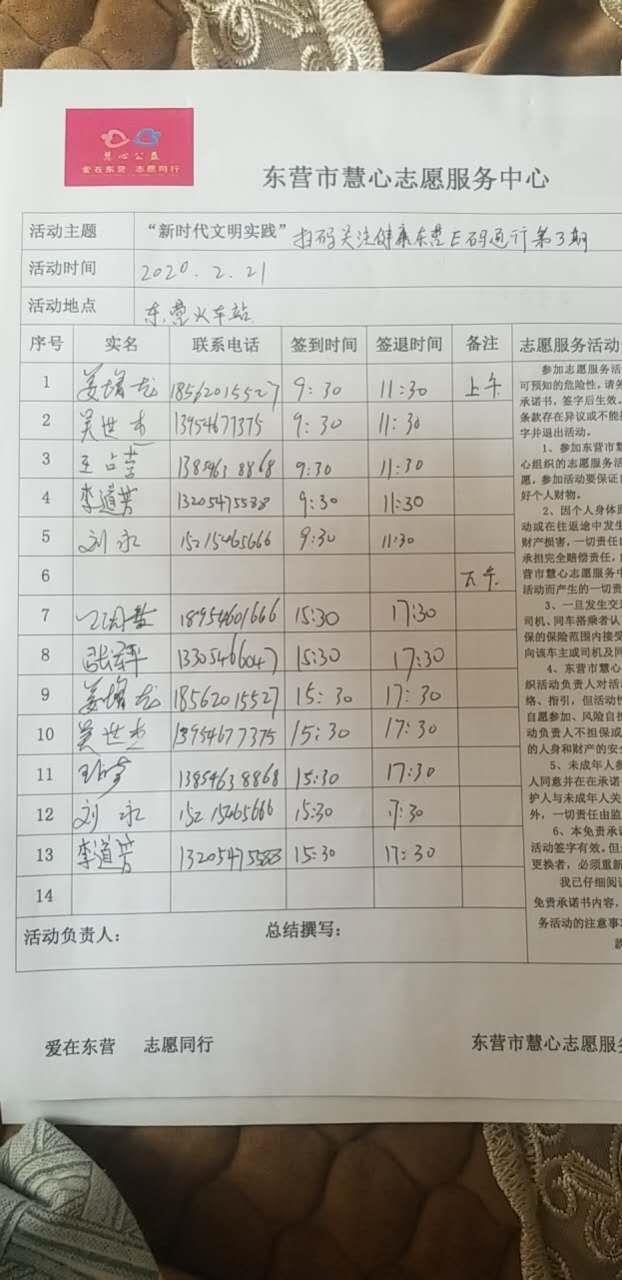 慧心公益
爱在东营 志愿同行
东营市慧心志愿服务中心
活动主题 “新时代文明实践” 扫码关注健康东营E码通行第3期
活动时间 2020.2.21
活动地点 东营火车站
序号 实名 联系电话 签到时间 签退时间 备注 志愿服务活动
1 姜增龙 18562015527 9:30 11:30 上午
2 吴世杰 13954677375 9:30 11:30
3 王占 13854638868 9:30 11:30
4 李道芳 13205475588 9:30 11:30
5 刘永 15215465666 9:30 11:30
6 下午
7 18954601666 15:30 17:30
8 13305466047 15:30 17:30
9 姜增龙 18562015527 15:30 17:30
10 吴世杰 13954677375 15:30 17:30
11 13854638868 15:30 17:30
12 刘永 15215465666 15:30 17:30
13 李道芳 13205475588 15:30 17:30
14
活动负责人： 总结撰写：
参加志愿服务活
可预知的危险性，请务
承诺书，签字后生效。
条款存在异议或不能
字并退出活动。
1、参加东营市
心组织的志愿服务活
愿，参加活动要保证
好个人财物。
2、因个人身体
动或在往返途中发生
财产损害，一切责任
承担完全赔偿责任，
营市慧心志愿服务中
活动而产生的一切责
3、一旦发生交
司机、同车搭乘者认
保的保险范围内接受
向该车主或司机及同
4、东营市慧心
织活动负责人对活
络、指引，但活动性
自愿参加、风险自
动负责人不担保或
的人身和财产的安
5、未成年人参
人同意并在在承诺
护人与未成年人关
外，一切责任由监
6、本免责承诺
活动签字有效。但
更换者，必须重新
我已仔细阅读
免责承诺书内容，
务活动的注意事
爱在东营 志愿同行 东营市慧心志愿服务